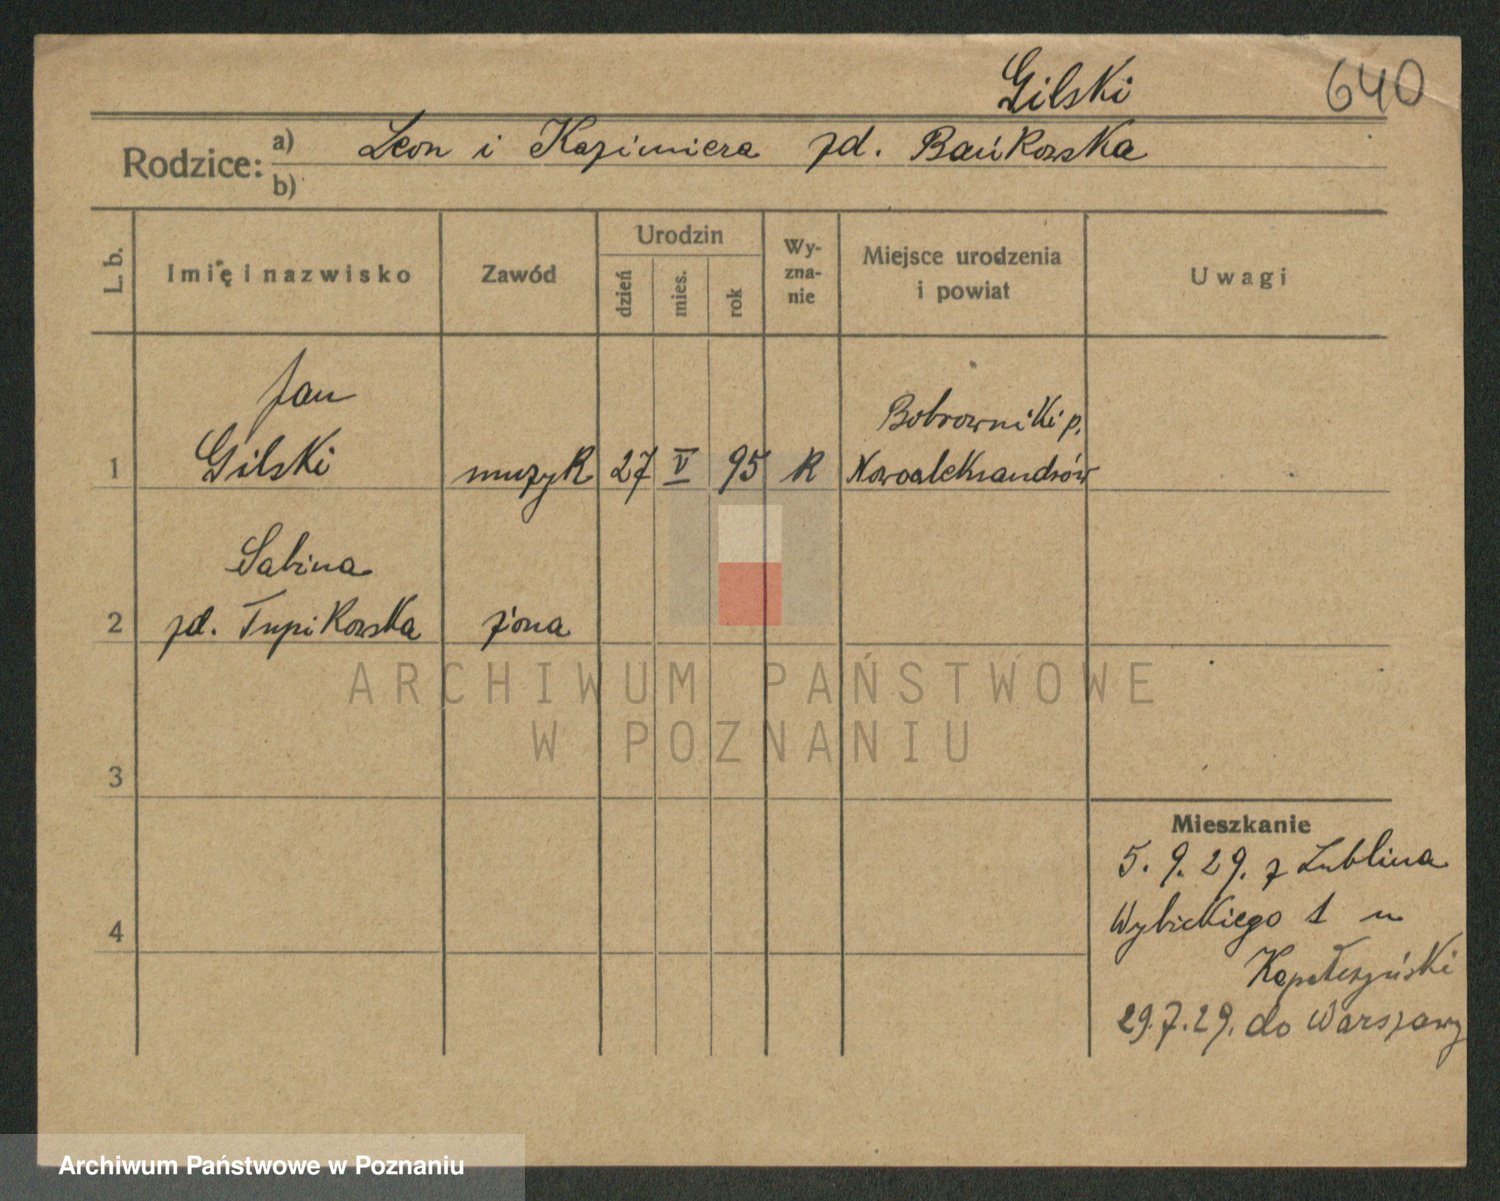 Gilski
640
Rodzice: a) Leon i Kazimiera zd. Bańkowska
b)
L. b.
Imię i nazwisko
Zawód
Urodzin
dzień
mies.
rok
Wy-
zna-
nie
Miejsce urodzenia
i powiat
Uwagi
Jan
Bobrowniki p.
1 Gilski muzyk 27 V 95 R Nowoaleksandrów
Sabina
2 zd. Tupikowska żona
ARCHIWUM PAŃSTWOWE
W POZNANIU
3
Mieszkanie
5. 9. 29. z Lublina
4 Wybickiego 1 u
29.7.29. do Warszawy
Archiwum Państwowe w Poznaniu